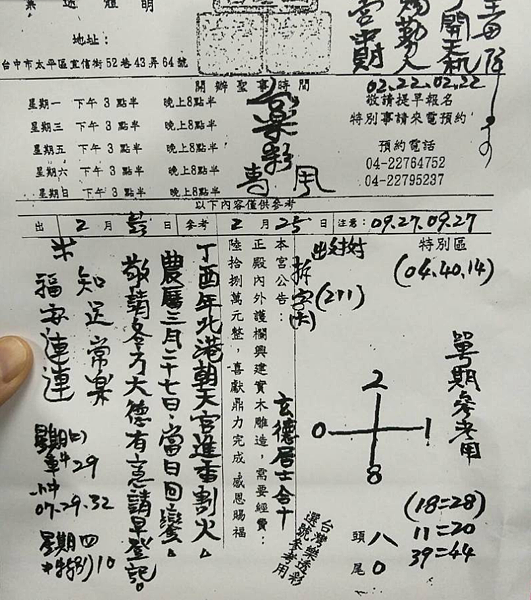 地址:
台中市太平區宜信街52巷43弄64號
開辦聖事時間
星期一 下午3點半 晚上8點半
星期三 下午3點半 晚上8點半
星期五 下午3點半 晚上8點半
星期六 下午3點半 晚上8點半
星期日 下午3點半 晚上8點半
02.22.02.22
敬請提早報名
特別事請來電預約
預約電話
04-22764752
04-22795237
以下內容僅供參考
出 2 月 日 參考 2 月 25 日 注意: 09.27.09.27
特別區
(04.40.14)
單期參考用
拆字
(211)
2
0 1
8
(18=28)
11=20
39=44
頭 八
尾 0
本宮公告:
正殿內外護欄興建實木雕造,需要經費:
陸拾捌萬元整,喜獻鼎力完成 感恩賜福
玄德居士合十
台灣樂透彩
選號參考用
丁酉年北港朝天宮進香割火
農曆三月二十七日.當日回鑾
敬請各方大德有意請早登記
知足常樂
福安連連
29
07.29.32
星期四
特別)10